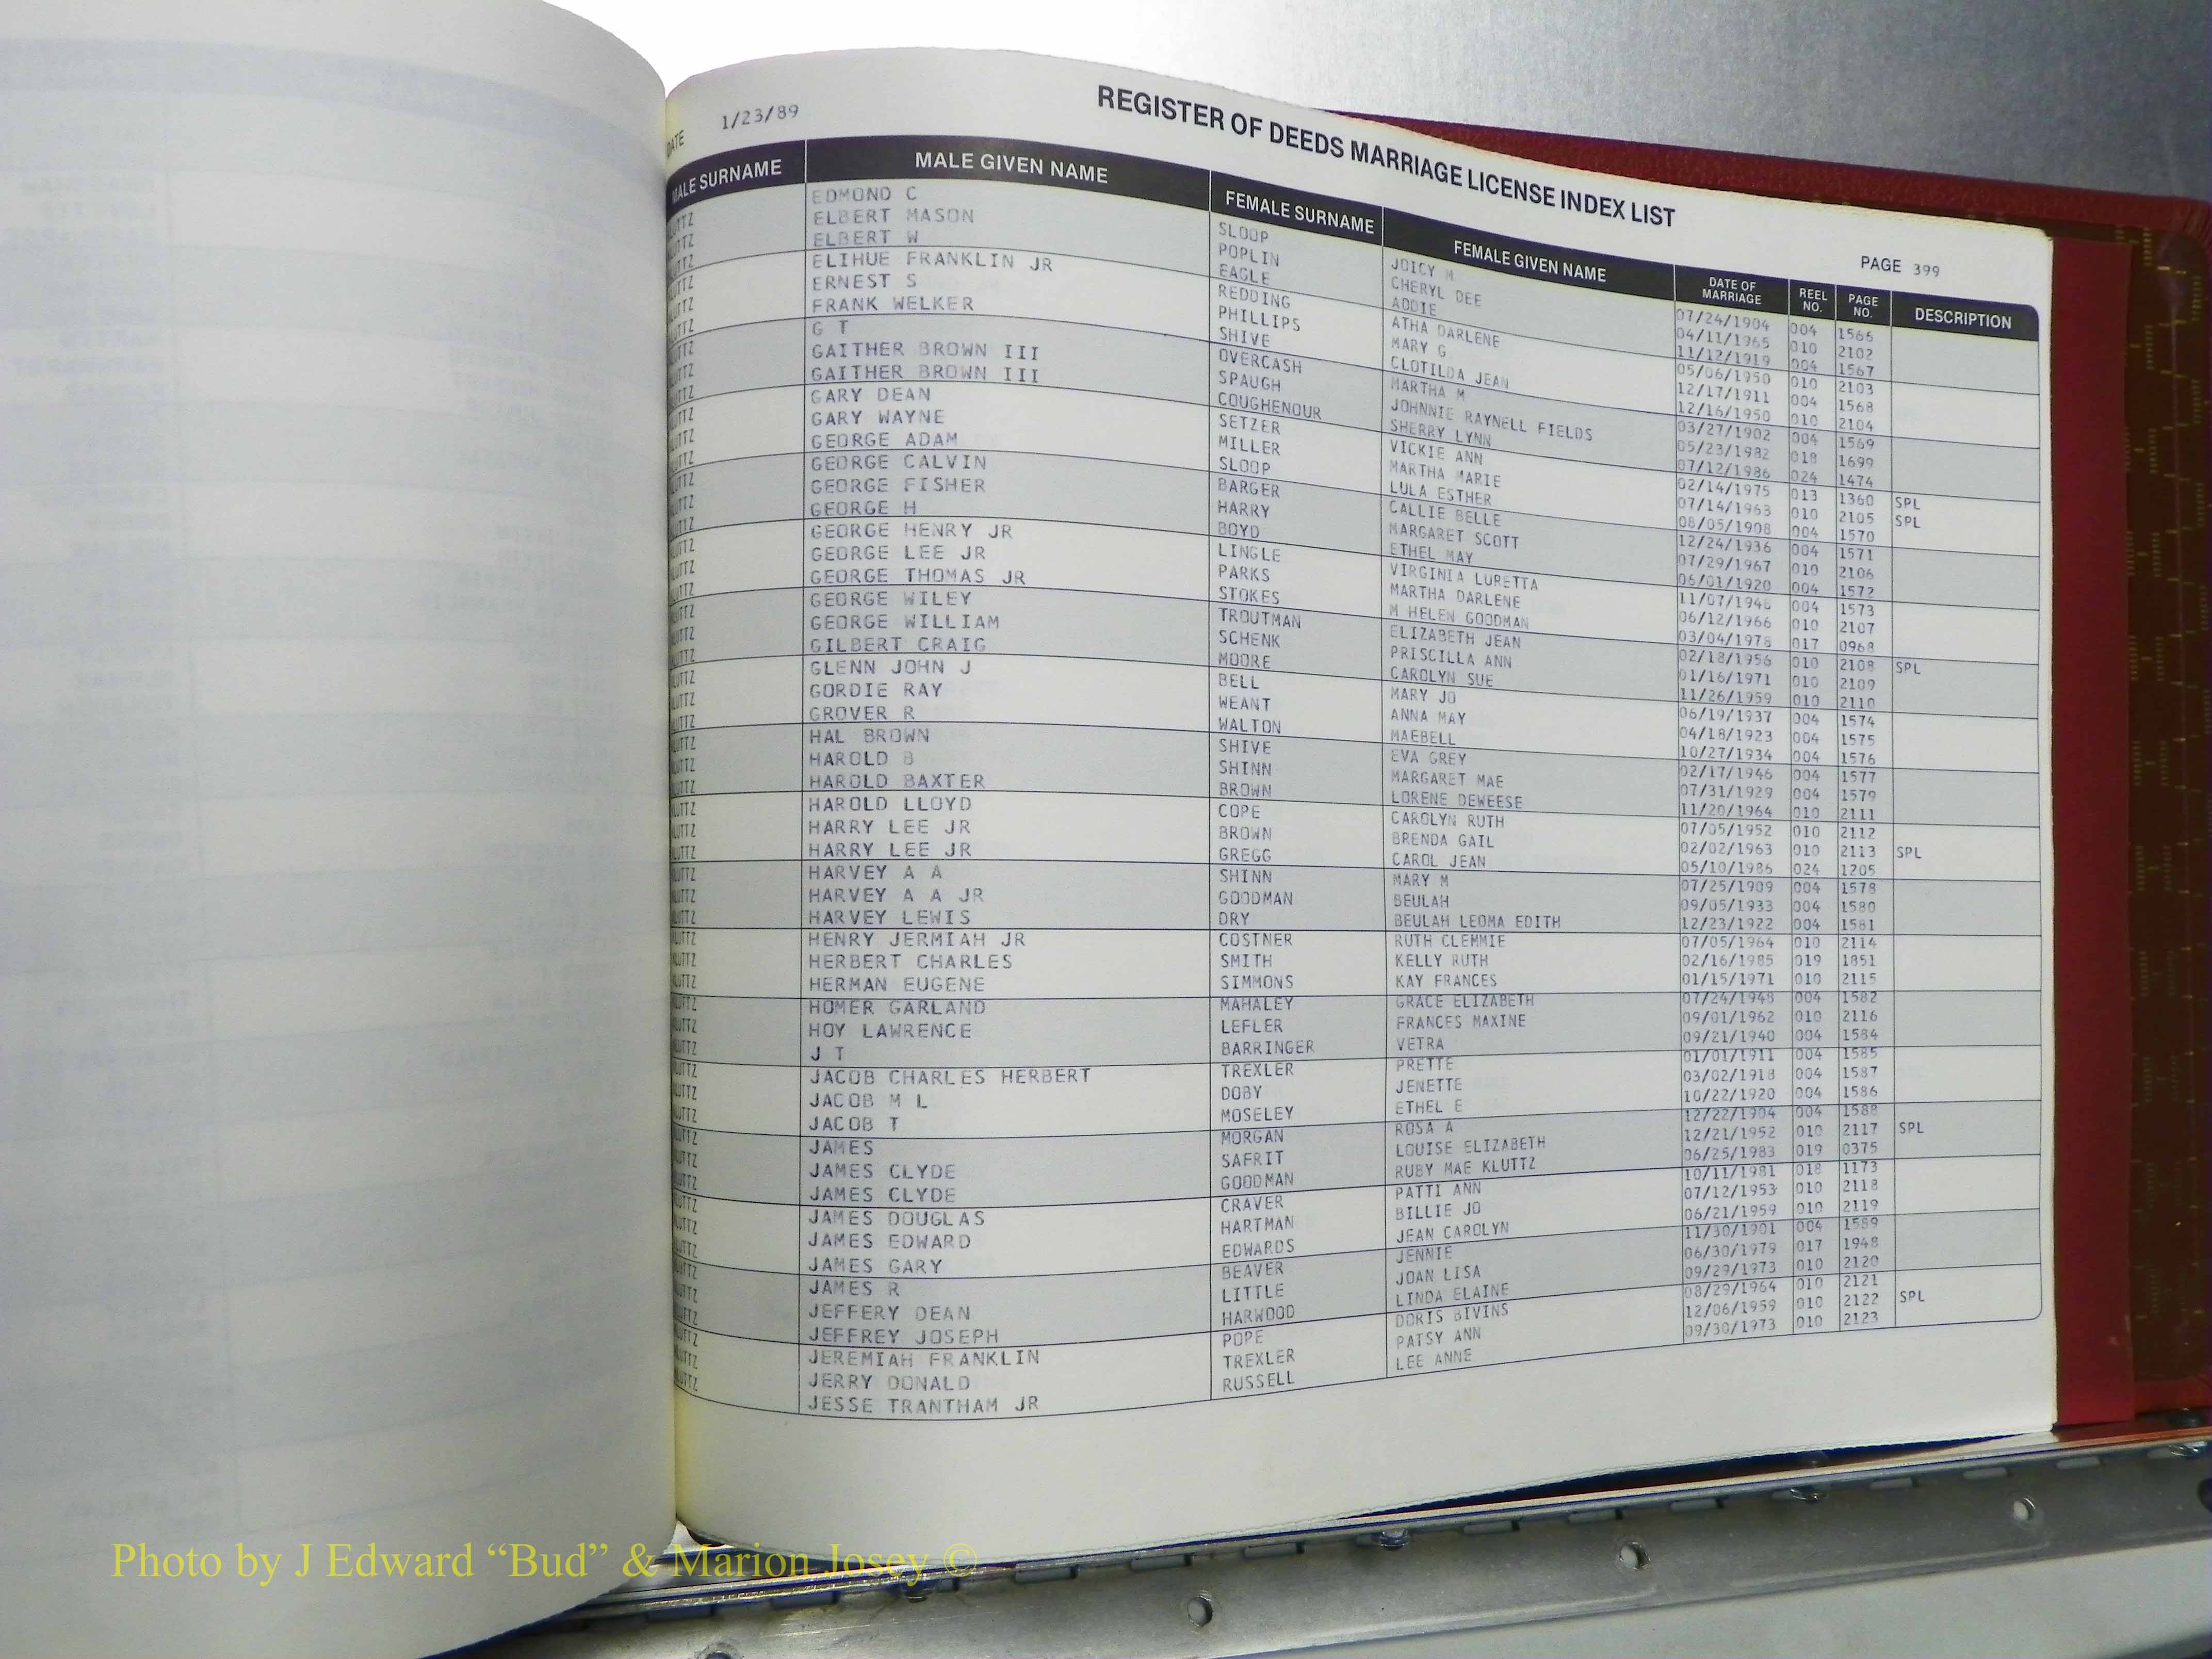 DATE 1/23/89
REGISTER OF DEEDS MARRIAGE LICENSE INDEX LIST
PAGE 399
MALE SURNAME MALE GIVEN NAME FEMALE SURNAME FEMALE GIVEN NAME DATE OF MARRIAGE REEL NO. PAGE NO. DESCRIPTION
KLUTTZ EDMOND C SLOOP JOICY M 07/24/1904 004 1566
KLUTTZ ELBERT MASON POPLIN CHERYL DEE 04/11/1965 010 2102
KLUTTZ ELBERT W EAGLE ADDIE 11/12/1919 004 1567
KLUTTZ ELIHUE FRANKLIN JR REDDING ATHA DARLENE 05/06/1950 010 2103
KLUTTZ ERNEST S PHILLIPS MARY G 12/17/1911 004 1568
KLUTTZ FRANK WELKER SHIVE CLOTILDA JEAN 12/16/1950 010 2104
KLUTTZ G T OVERCASH MARTHA M 03/27/1902 004 1569
KLUTTZ GAITHER BROWN III SPAUGH JOHNNIE RAYNELL FIELDS 05/23/1982 018 1699
KLUTTZ GAITHER BROWN III COUGHENOUR SHERRY LYNN 07/12/1986 024 1474
KLUTTZ GARY DEAN SETZER VICKIE ANN 02/14/1975 013 1360 SPL
KLUTTZ GARY WAYNE MILLER MARTHA MARIE 07/14/1963 010 2105 SPL
KLUTTZ GEORGE ADAM SLOOP LULA ESTHER 08/05/1908 004 1570
KLUTTZ GEORGE CALVIN BARGER CALLIE BELLE 12/24/1936 004 1571
KLUTTZ GEORGE FISHER HARRY MARGARET SCOTT 07/29/1967 010 2106
KLUTTZ GEORGE H BOYD ETHEL MAY 06/01/1920 004 1572
KLUTTZ GEORGE HENRY JR LINGLE VIRGINIA LURETTA 11/07/1946 004 1573
KLUTTZ GEORGE LEE JR PARKS MARTHA DARLENE 06/12/1966 010 2107
KLUTTZ GEORGE THOMAS JR STOKES M HELEN GOODMAN 03/04/1978 017 0968
KLUTTZ GEORGE WILEY TROUTMAN ELIZABETH JEAN 02/18/1956 010 2108 SPL
KLUTTZ GEORGE WILLIAM SCHENK PRISCILLA ANN 01/16/1971 010 2109
KLUTTZ GILBERT CRAIG MOORE CAROLYN SUE 11/26/1959 010 2110
KLUTTZ GLENN JOHN J BELL MARY JO 06/19/1937 004 1574
KLUTTZ GORDIE RAY WEANT ANNA MAY 04/18/1923 004 1575
KLUTTZ GROVER R WALTON MAEBELL 10/27/1934 004 1576
KLUTTZ HAL BROWN SHIVE EVA GREY 02/17/1946 004 1577
KLUTTZ HAROLD B SHINN MARGARET MAE 07/31/1929 004 1579
KLUTTZ HAROLD BAXTER BROWN LORENE DEWEESE 11/20/1964 010 2111
KLUTTZ HAROLD LLOYD COPE CAROLYN RUTH 07/05/1952 010 2112
KLUTTZ HARRY LEE JR BROWN BRENDA GAIL 02/02/1963 010 2113 SPL
KLUTTZ HARRY LEE JR GREGG CAROL JEAN 05/10/1986 024 1205
KLUTTZ HARVEY A A SHINN MARY M 07/25/1909 004 1578
KLUTTZ HARVEY A A JR GOODMAN BEULAH 09/05/1933 004 1580
KLUTTZ HARVEY LEWIS DRY BEULAH LEOMA EDITH 12/23/1922 004 1581
KLUTTZ HENRY JERMIAH JR COSTNER RUTH CLEMMIE 07/05/1964 010 2114
KLUTTZ HERBERT CHARLES SMITH KELLY RUTH 02/16/1985 019 1851
KLUTTZ HERMAN EUGENE SIMMONS KAY FRANCES 01/15/1971 010 2115
KLUTTZ HOMER GARLAND MAHALEY GRACE ELIZABETH 07/24/1948 004 1582
KLUTTZ HOY LAWRENCE LEFLER FRANCES MAXINE 09/01/1962 010 2116
KLUTTZ J T BARRINGER VETRA 09/21/1940 004 1584
KLUTTZ JACOB CHARLES HERBERT TREXLER PRETTE 01/01/1911 004 1585
KLUTTZ JACOB M L DOBY JENETTE 03/02/1918 004 1587
KLUTTZ JACOB T MOSELEY ETHEL E 10/22/1920 004 1586
KLUTTZ JAMES MORGAN ROSA A 12/22/1904 004 1588
KLUTTZ JAMES CLYDE SAFRIT LOUISE ELIZABETH 12/21/1952 010 2117 SPL
KLUTTZ JAMES CLYDE GOODMAN RUBY MAE KLUTTZ 06/25/1983 019 0375
KLUTTZ JAMES DOUGLAS CRAVER PATTI ANN 10/11/1981 018 1173
KLUTTZ JAMES EDWARD HARTMAN BILLIE JO 07/12/1953 010 2118
KLUTTZ JAMES GARY EDWARDS JEAN CAROLYN 06/21/1959 010 2119
KLUTTZ JAMES R BEAVER JENNIE 11/30/1901 004 1589
KLUTTZ JEFFERY DEAN LITTLE JOAN LISA 06/30/1979 017 1948
KLUTTZ JEFFREY JOSEPH HARWOOD LINDA ELAINE 09/29/1973 010 2120
KLUTTZ JEREMIAH FRANKLIN POPE DORIS BIVINS 08/29/1964 010 2121
KLUTTZ JERRY DONALD TREXLER PATSY ANN 12/06/1959 010 2122 SPL
KLUTTZ JESSE TRANTHAM JR RUSSELL LEE ANNE 09/30/1973 010 2123
Photo by J Edward “Bud” & Marion Josey ©